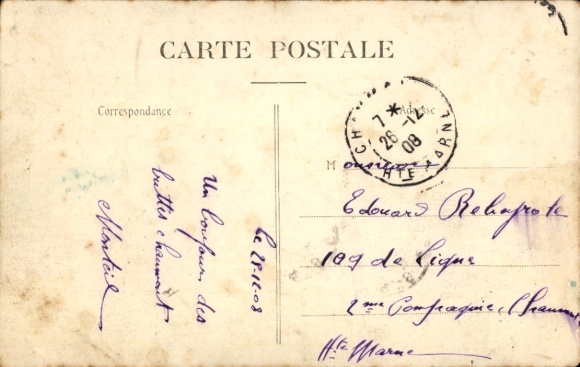 CARTE POSTALE
Correspondance
Adresse
7 * 26 -12 08
HTE MARNE
Monsieur
Edouard
109 de Ligne
2me Compagnie, Chaumont
Hte Marne
le 25-12-08
Un bonjour des
buttes chaumont